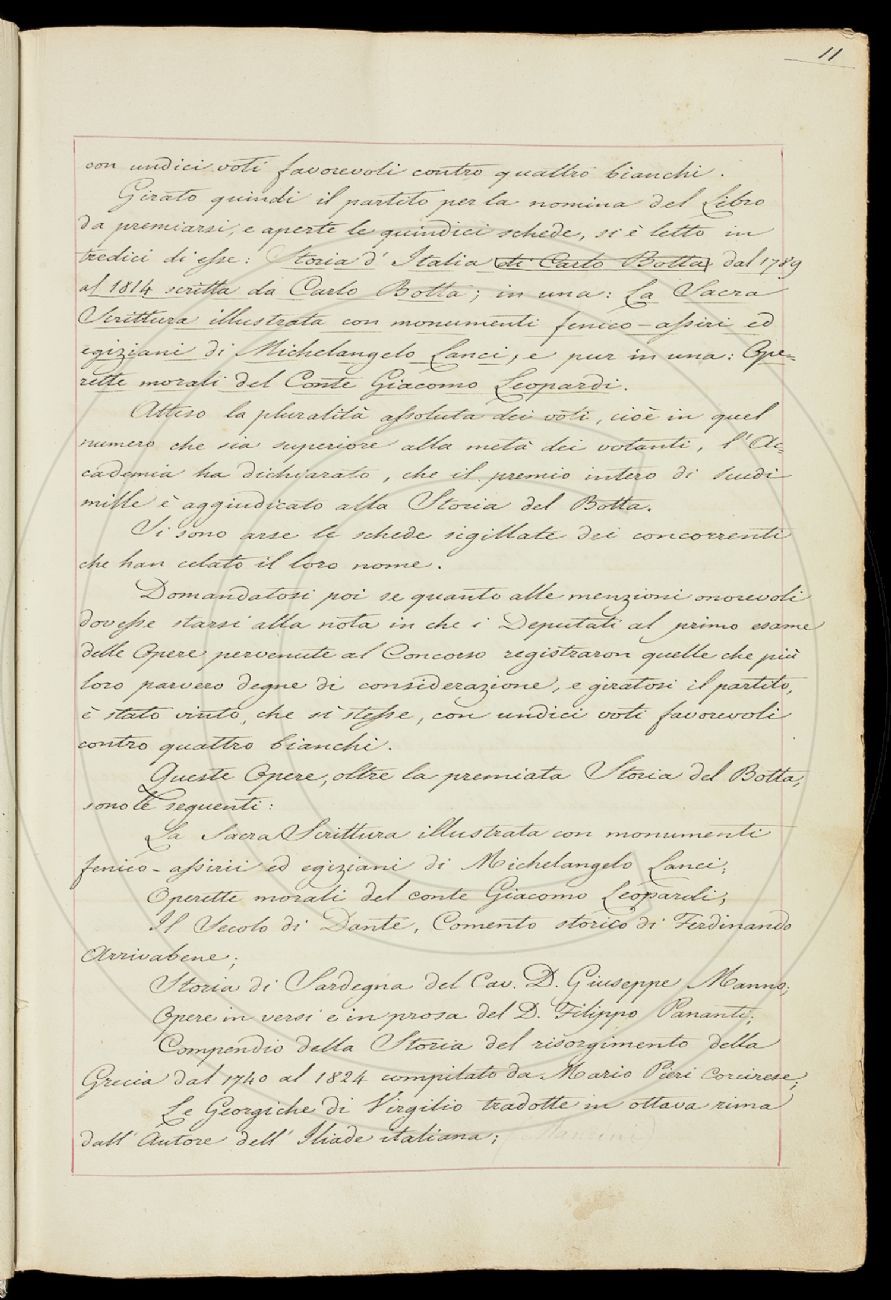 11
con undici voti favorevoli contro quattro bianchi.
Girato quindi il partito per la nomina del Libro
da premiarsi, e aperte le quindici schede, si è letto in
tredici di esse: Storia d'Italia di Carlo Botta dal 1789
al 1814 scritta da Carlo Botta; in una: La Sacra
Scrittura illustrata con monumenti fenico-assiri ed
egiziani di Michelangelo Lanci, e pur in una: Ope=
rette morali del Conte Giacomo Leopardi.
Atteso la pluralità assoluta dei voti, cioè in quel
numero che sia superiore alla metà dei votanti, l'Ac=
cademia ha dichiarato, che il premio intero di Scudi
mille è aggiudicato alla Storia del Botta.
Si sono arse le schede sigillate dei concorrenti
che han celato il loro nome.
Domandatosi poi se quanto alle menzioni onorevoli
dovesse starsi alla nota in che i Deputati al primo esame
delle Opere pervenute al Concorso registraron quelle che più
loro parvero degne di considerazione, e giratosi il partito,
è stato vinto, che si stesse, con undici voti favorevoli
contro quattro bianchi.
Queste Opere, oltre la premiata Storia del Botta,
sono le seguenti:
La Sacra Scrittura illustrata con monumenti
fenico-assirii ed egiziani di Michelangelo Lanci;
Operette morali del conte Giacomo Leopardi;
Il Secolo di Dante, Comento storico di Ferdinando
Arrivabene;
Storia di Sardegna del Cav. D. Giuseppe Manno;
Opere in versi e in prosa del D. Filippo Pananti;
Compendio della Storia del risorgimento della
Grecia dal 1740 al 1824 compilato da Mario Pieri Corcirese;
Le Georgiche di Virgilio tradotte in ottava rima
dall'Autore dell'Iliade italiana;